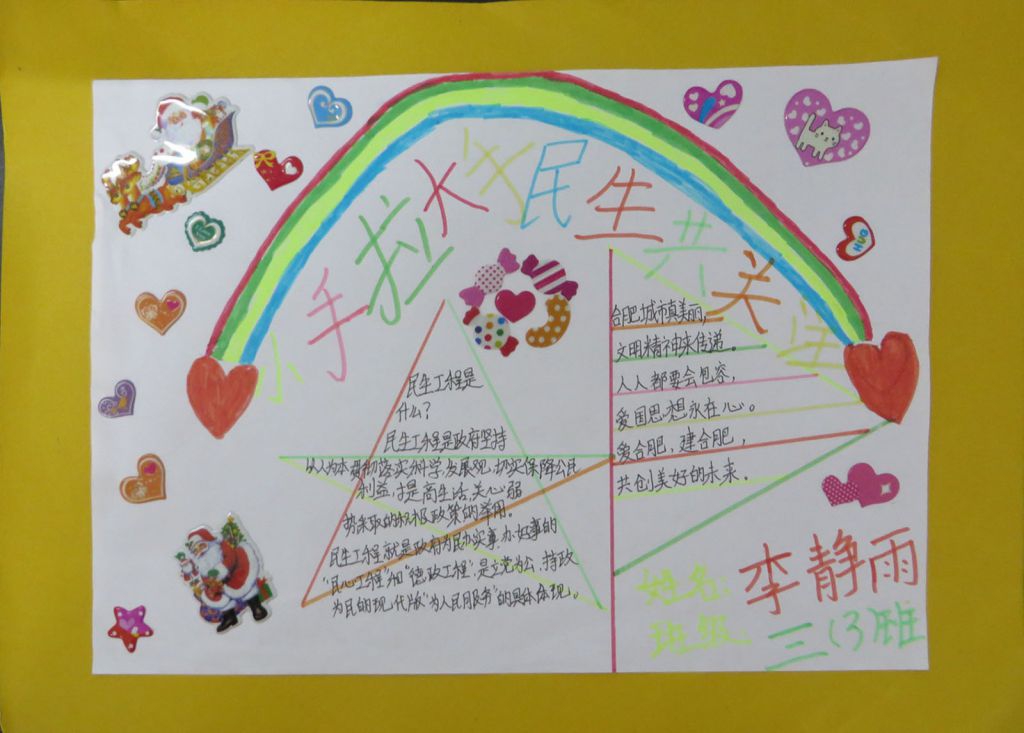 小手拉大手民生共关注
民生工程是
什么?
民生工程是政府坚持
以人为本贯彻落实科学发展观,切实保障公民
利益,提高生活,关心弱
势采取的积极政策的举用。
民生工程就是政府为民办实事,办好事的
“民心工程”和“德政工程”,是立党为公、持政
为民的现代版“为人民服务”的具体体现。
合肥城市真美丽,
文明精神来传递。
人人都要会包容,
爱国思想永在心。
爱合肥,建合肥,
共创美好的未来。
HUG
姓名:李静雨
班级:三(3)班